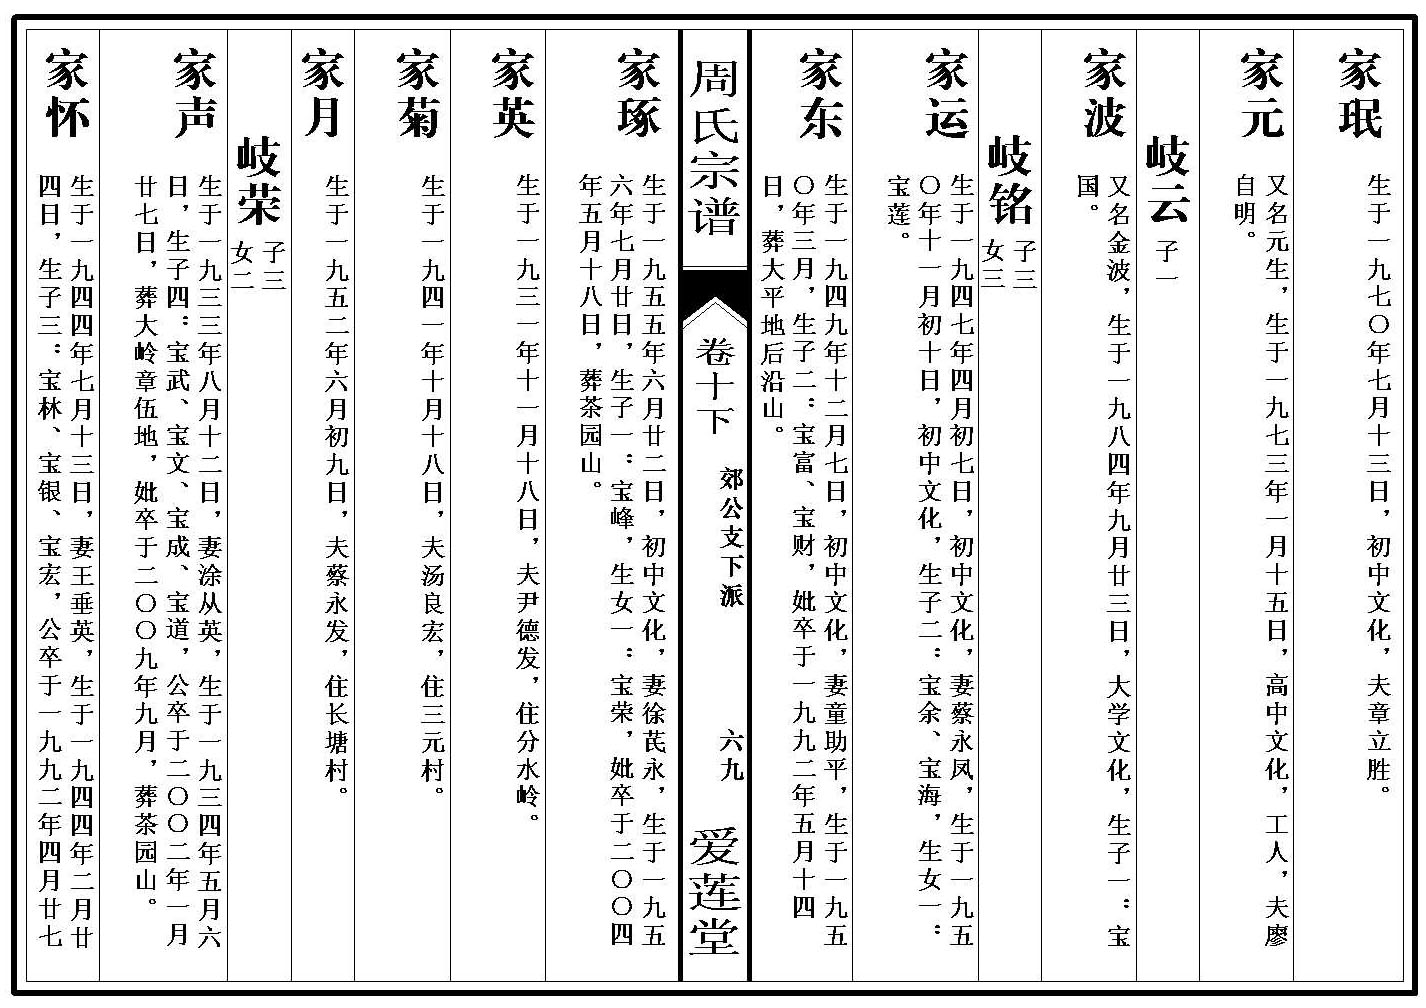 家珉
生于一九七〇年七月十三日，初中文化，夫章立胜。
家元
又名元生，生于一九七三年一月十五日，高中文化，工人，夫廖
自明。
岐云
子一
家波
又名金波，生于一九八四年九月廿三日，大学文化，生子一：宝
国。
岐铭
子三
女三
家运
生于一九四七年四月初七日，初中文化，妻蔡永凤，生于一九五
〇年十一月初十日，初中文化，生子二：宝余、宝海，生女一：
宝莲。
家东
生于一九四九年十二月七日，初中文化，妻童助平，生于一九五
〇年三月，生子二：宝富、宝财，妣卒于一九九二年五月十四
日，葬大平地后沿山。
周氏宗谱
卷十下
郊公支下派
六九
爱莲堂
家琢
生于一九五五年六月廿二日，初中文化，妻徐芪永，生于一九五
六年七月廿日，生子一：宝峰，生女一：宝荣，妣卒于二〇〇四
年五月十八日，葬茶园山。
家英
生于一九三一年十一月十八日，夫尹德发，住分水岭。
家菊
生于一九四一年十月十八日，夫汤良宏，住三元村。
家月
生于一九五二年六月初九日，夫蔡永发，住长塘村。
岐荣
子三
女二
家声
生于一九三三年八月十二日，妻涂从英，生于一九三四年五月六
日，生子四：宝武、宝文、宝成、宝道，公卒于二〇〇二年一月
廿七日，葬大岭章伍地，妣卒于二〇〇九年九月，葬茶园山。
家怀
生于一九四四年七月十三日，妻王垂英，生于一九四四年二月廿
四日，生子三：宝林、宝银、宝宏，公卒于一九九二年四月廿七